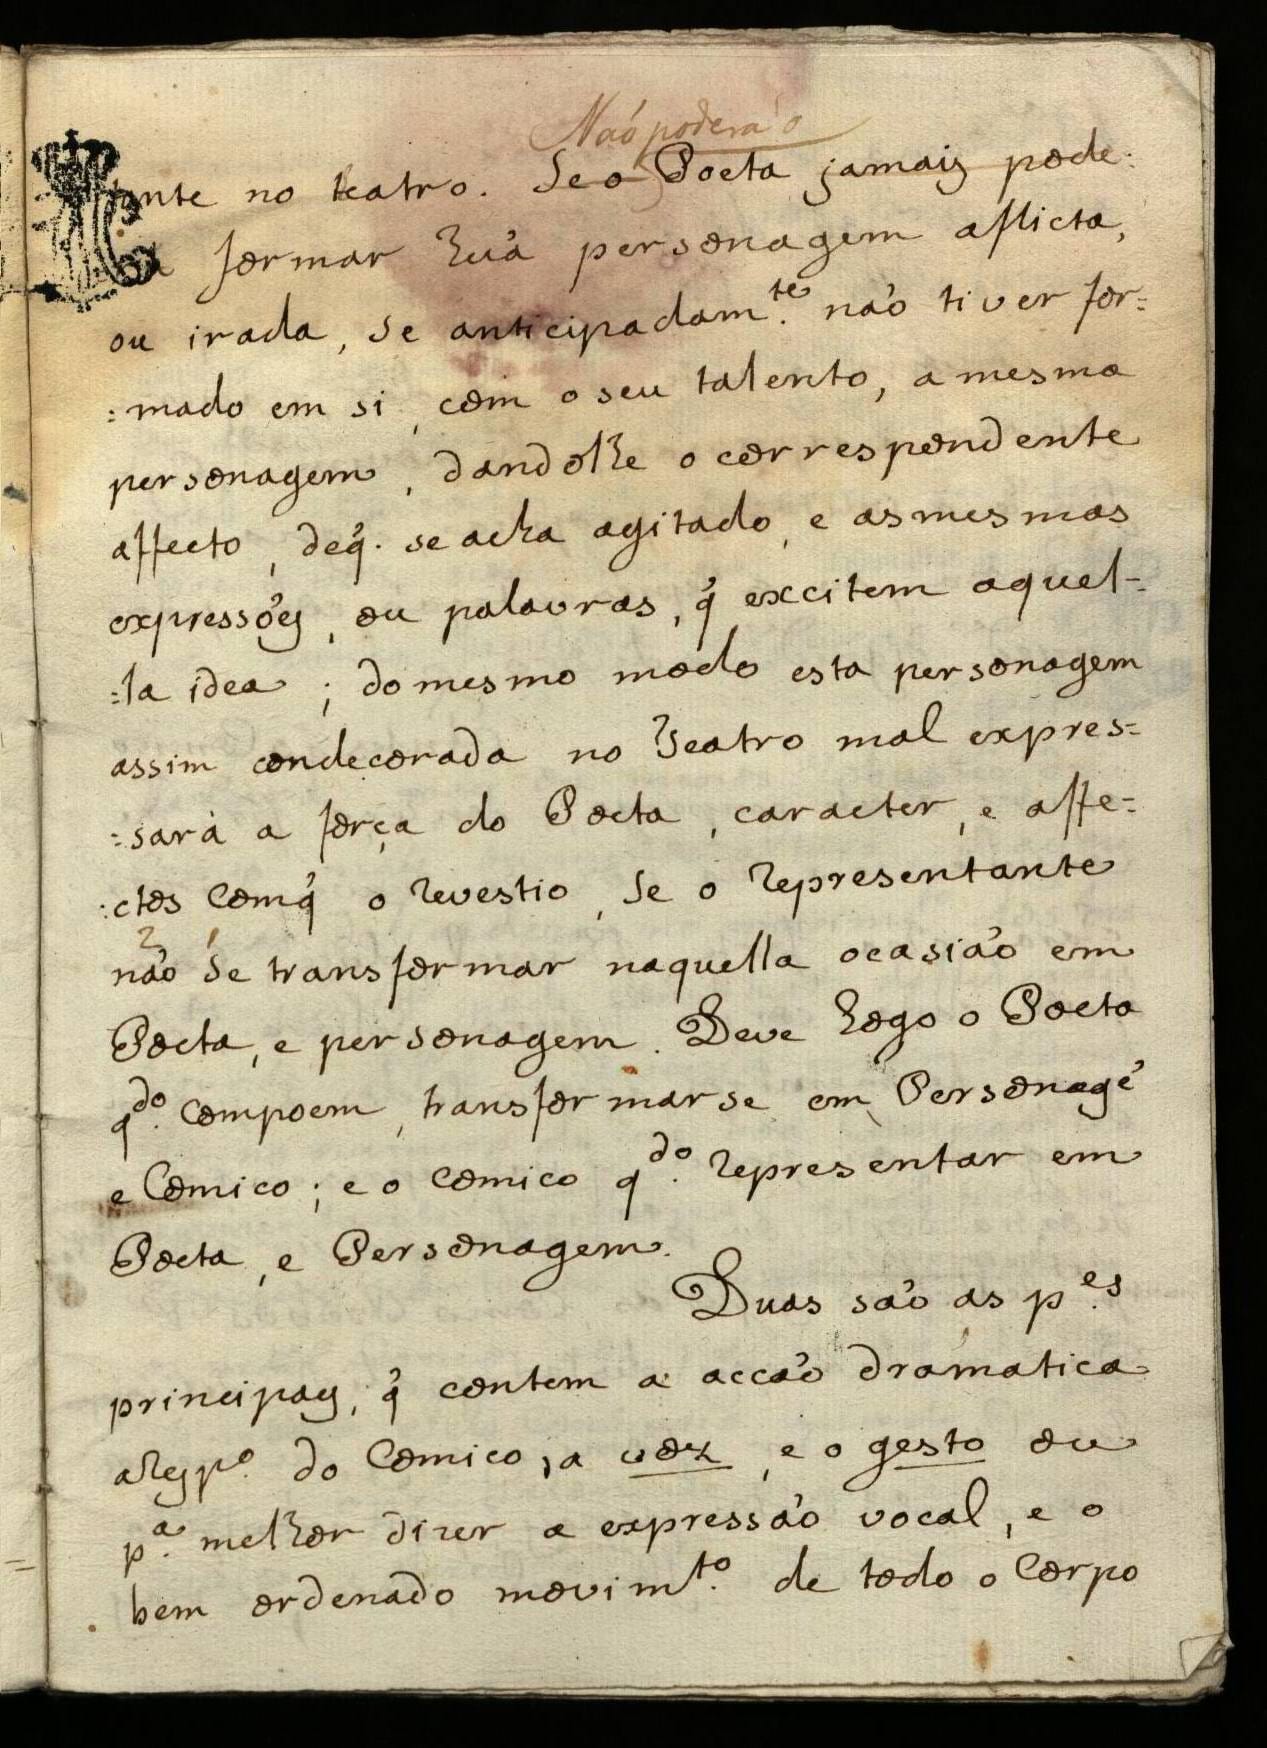 Não poderá o
tante no teatro. Se o Poeta jamais pode:
formar huá personagem aflicta,
ou irada, se anticipadam.te não tiver for=
=mado em si, com o seu talento, a mesma
personagem, dandolhe o correspondente
affecto, deq̃. se acha agitado, e as mesmas
expressões, ou palavras, q̃ excitem aquel-
=la idea; do mesmo modo esta personagem
assim condecorada no Teatro mal expres=
=sará a força do Poeta, caracter, e affe=
:ctos Comq̃ o revestio, se o representante
2 1
não se transformar naquella ocasião em
Poeta, e personagem. Deve logo o Poeta
q.do compoem, transformarse em Personagẽ
e Comico; e o comico q.do representar em
Poeta, e Personagem.
Duas são as p.es
principaes, q̃ contem a acção dramatica
a resp.o do Comico, a voz, e o gesto ou
p.a melhor dizer a expressão vocal, e o
bem ordenado movim.to de todo o Corpo